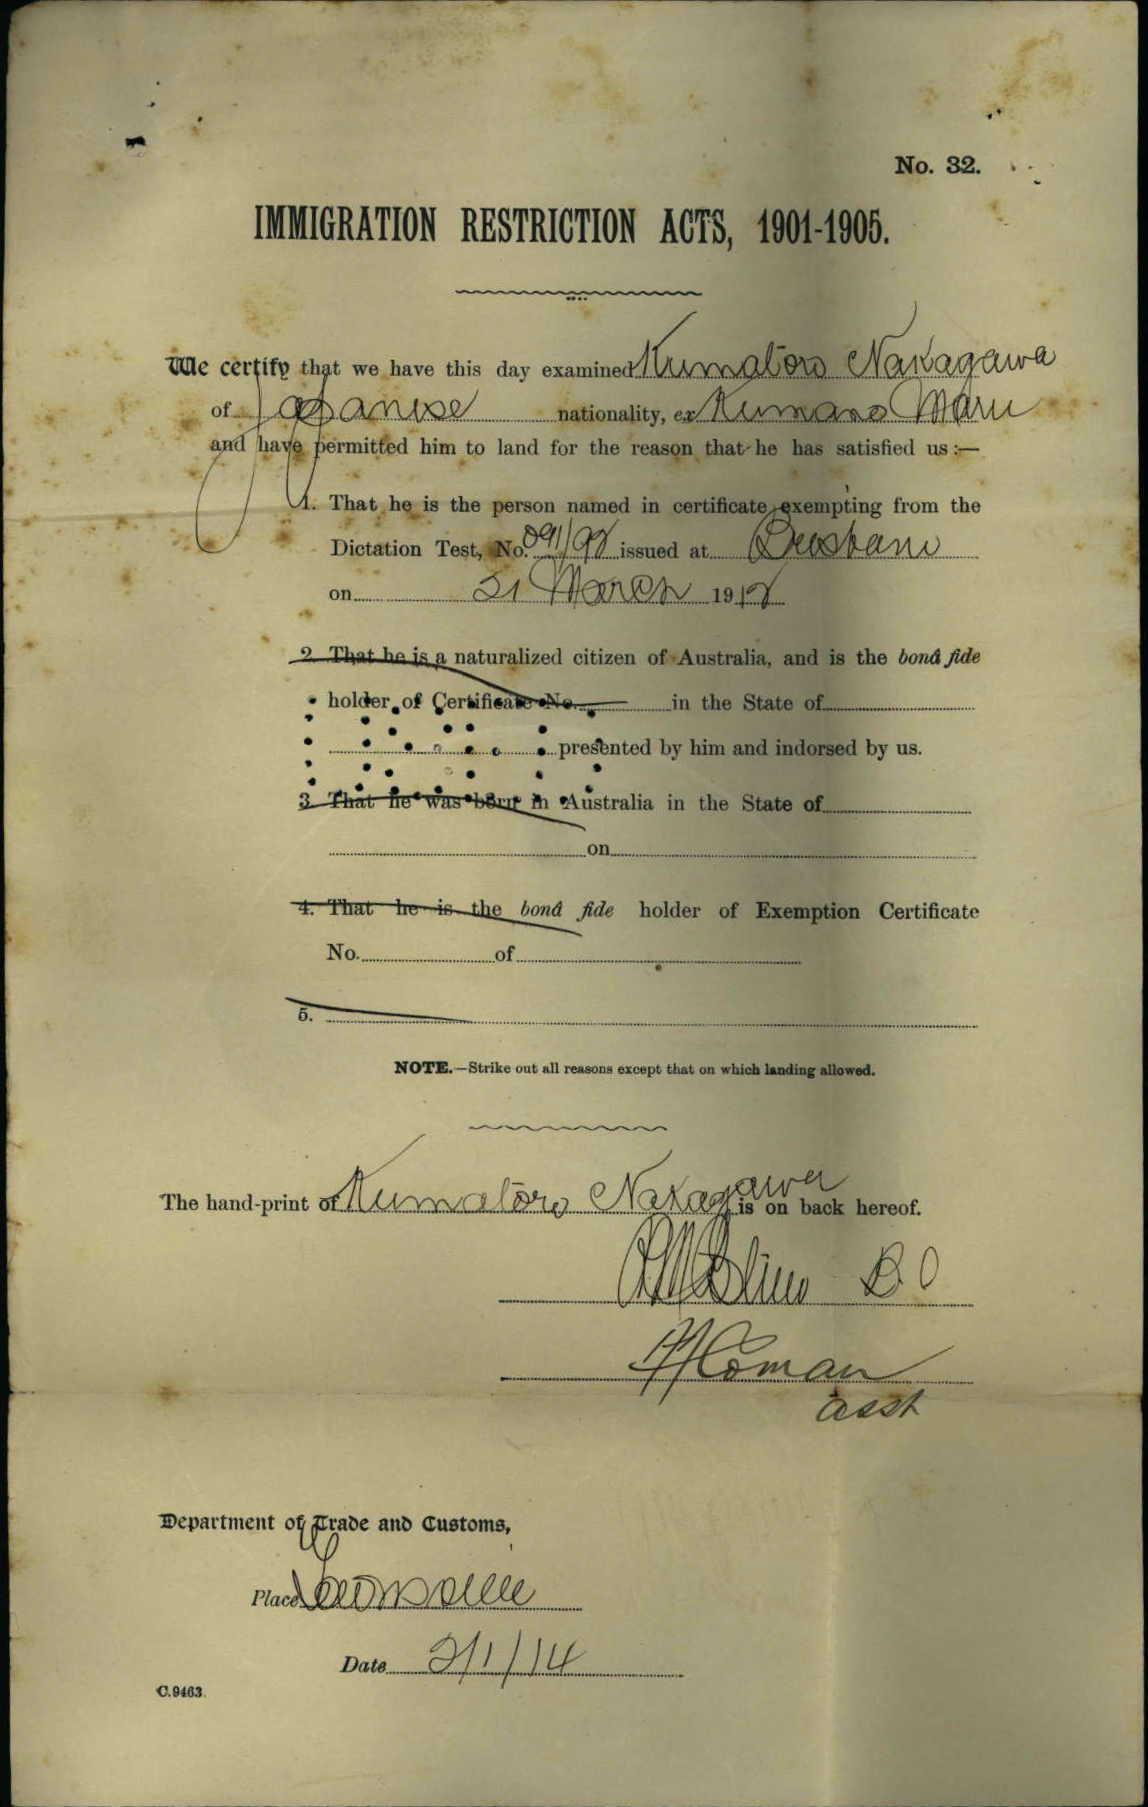 No. 32.
IMMIGRATION RESTRICTION ACTS, 1901-1905.
We certify that we have this day examined Kumatoro Nakagawa
of Japanese nationality, ex Kumano Maru
and have permitted him to land for the reason that he has satisfied us :—
1. That he is the person named in certificate exempting from the
Dictation Test, No. issued at Brisbane
on March 191
2. That he is a naturalized citizen of Australia, and is the bonâ fide
holder of Certificate No. in the State of
presented by him and indorsed by us.
3. That he was born in Australia in the State of
on
4. That he is the bonâ fide holder of Exemption Certificate
No. of
5.
NOTE.—Strike out all reasons except that on which landing allowed.
The hand-print of Kumatoro Nakagawa is on back hereof.
Coman
asst
Department of Trade and Customs,
Place Townsville
Date 2/1/14
C.9463.